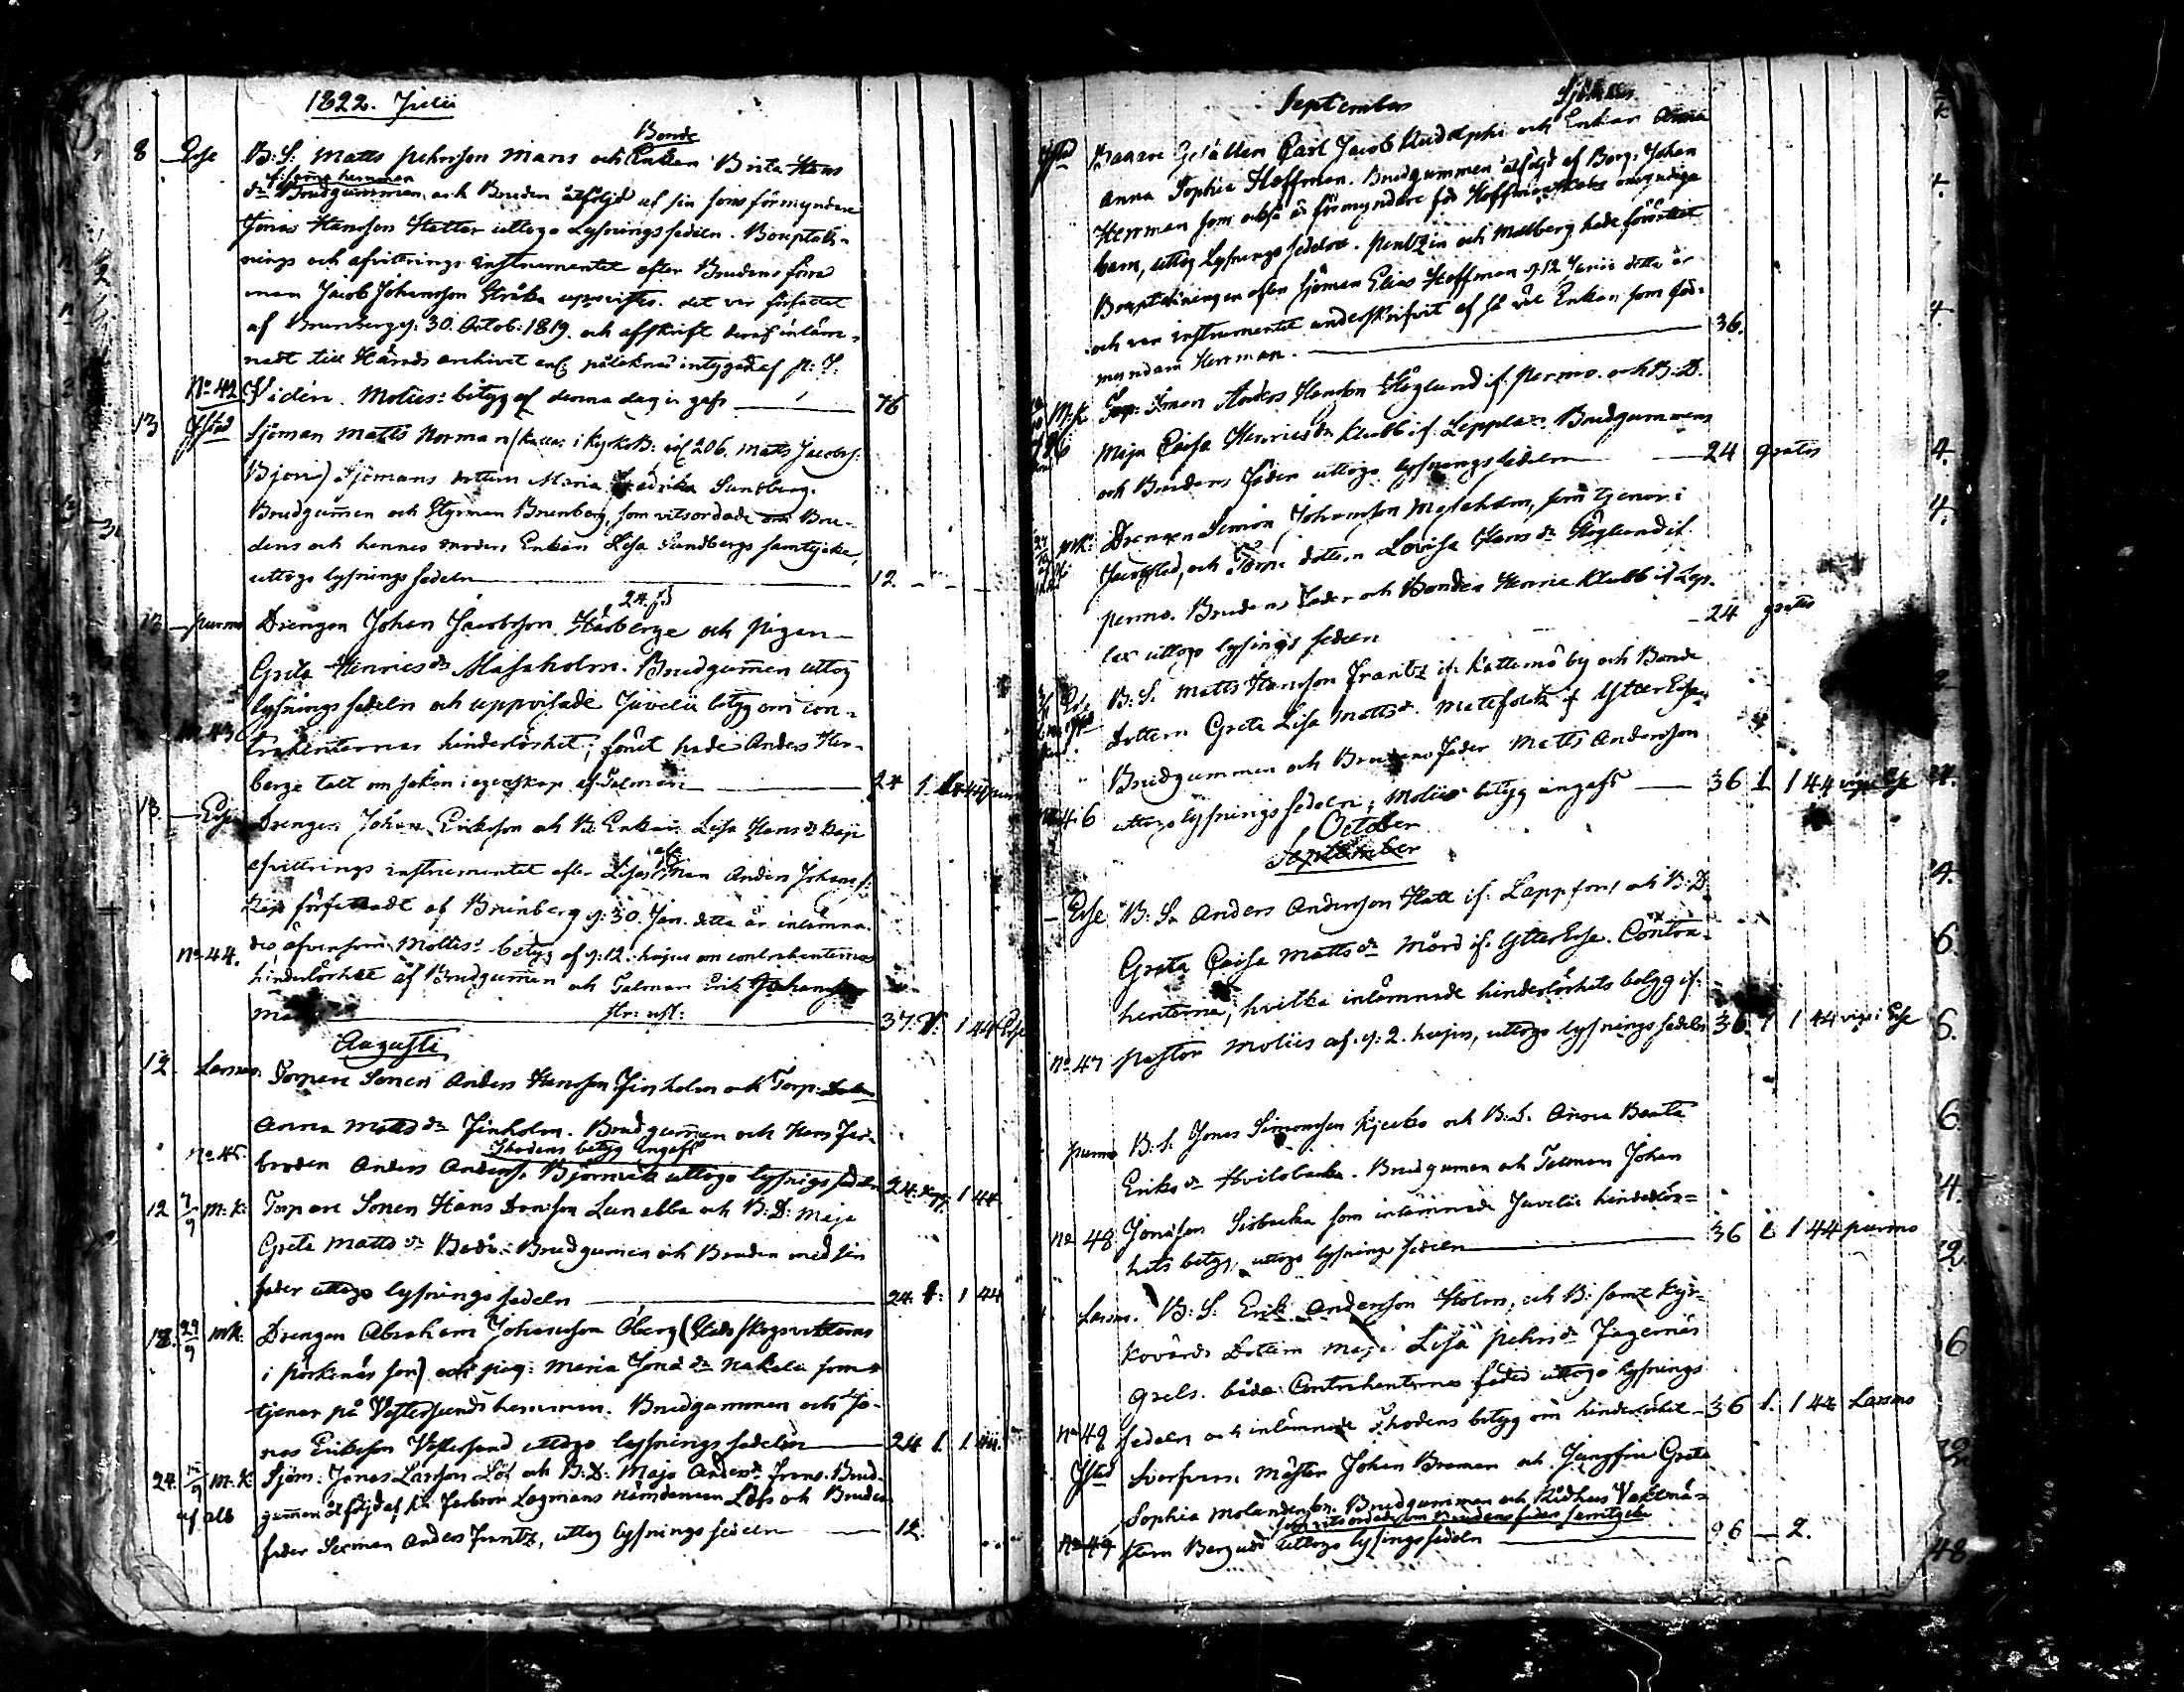 1822. Julii
Bonde
8 Esse B: S: Matts Pehrsson Mans och Enkan Brita Hans
if: samma hemman
dr Brudgummen, och Bruden åtföljd af sin sons förmyndare
Jonas Hansson Hatter uttogo Lysningssedeln. Bouptek-
nings och afvittrings instrumentet efter Brudens förra
man Jacob Johansson Stråka uppvistes. det var författat
af Brunberg d: 30. Octob: 1819. och afskrift deraf inläm-
nadt till Härads archivet enl: påteknad intyg af P: J:
No 42 Viden. Molins betyg af denna dag in gafs 76
13 Jfstad Sjöman Matts Norman (kallas i KyrkoB: vol 206. Matts Jacobs:
Bjon) Sjömans dottern Maria Fredrika Sundberg.
Brudgumen och Styrman Brunberg, som vitsordade om Bru-
dens och hennes moders Enkan Lisa Sundbergs samtycke,
uttogo lysnings sedeln 12
24. sk
13 Purmo Drengen Johan Jacobsson Hårberge och Pigan
Greta Henricsdr Masaholm. Brudgumen uttog
lysnings sedeln och uppvisade Juvelii betyg om con-
No 43 trahenternas hinderlöshet; förut hade Anders Her-
berge talt om saken i egenskap af Talman 24 1 1 44 purm
13 Esse Drengen Johan Eriksson och B: Enkan Lisa Hansdr Kaje
afl
afvittrings instrumentet efter Lisas man Anders Johans:
Kaje författadt af Brunberg d: 30. Jan. detta år inlämna-
No 44. des äfvensom Molins betyg af d: 12. hujus om contrahenternas
hinderlöshet af Brudgumen och Talman Erik Johansson
37. 1: 1 44 Esse
Augusti
12. Larsmo: Torpare Sonen Anders Hansson Finholm och Torp:
Anna Mattsdr Finholm. Brudgumen och Hans Far-
Thodens betyg ingafs
No 45. broder Anders Anders: Björnvik uttogo lysnigs sedeln 24. 1 44.
12 7/9 M: K: Torpare Sonen Hans Hansson Lunabba och B: D: Maja
Greta Mattsdr Bodö. Brudgumen och Bruden med sin
fader uttogo lysnings sedeln 24. 1: 1 44
18. 29/9 MK: Drengen Abraham Johansson Öberg (Stads skogsvaktarens
i Pörkenäs son) och pig: Maria Jonædr Nakala som
tjenar på Vestersunds hemman. Brudgummen och Jo-
nas Eriksson Vestersund uttogo lysnings sedeln 24 1. 1. 44.
24. 15/9 M: K: Sjöm: Jonas Larsson Löf och B: D: Maja Andersdr Frans. Brud-
af alb gumen åtföljd af Farbror Lagmans Nämdeman Löfs och Brudens
fader Sexman Anders Frantz, uttog lysnings sedeln 12.
September Sjömans
Jfstad Bagare Gesällen Carl Jacob Rudolphi och Enkan Anna
Anna Sophia Hoffman. Brudgummen åtföljd af Borg: Johan
Herrman som också är förmyndare för Hoffmanskas omyndiga
barn, uttog lysnings sedeln. Pentzin och Malberg hade förrättat
Bouptekningen efter sjöman Elias Hoffman d. 12 Junii detta år
och var instrumentet underskrifvit af så väl Enkan som för-
myndaren Herrman. 36.
M: K: Torp: Sonen Anders Hansson Höglund if. Permo. och B: D.
Maja Caisa Henricsdr Klubb if. Lepplax. Brudgummens
och Brudens Fäder uttogo lysnings sedeln 24 gratis
MK: Drengen Simon Johansson Masaholm, som tjenar i
Jacobstad, och Torp: dottern Lovisa Hansdr Höglund if.
Permo. Brudens Fader och Bonden Henric Klubb if Lep-
lax uttogo lysnings sedeln 24 gratis
Esse B: S. Matts Hansson Frantz if: Kattemö by och Bonde
dottern Greta Lisa Mattsdr. Matsfolck if Ytter Esse.
Brudgummen och Brudens Fader Matts Andersson
No 46 uttogo lysnings sedeln; Molins betyg ingafs 36 1 1 44 vigs i Esse
October
September
Esse B: Sn Anders Andersson Hatt if. Lappfors och B: D
Greta Caisa Mattsdr Mård if: Ytter Esse. Contra-
henterna, hvilka inlämnade hinderlöshets betyg if:
No 47 Pastor Molins af. d: 2. hujus, uttogo lysnings sedeln 36. 1 1 44 vigs i Esse
Purmo B: S. Jonas Simonsson Kjecko och B: D. Anna Beata
Eriksdr Hvilobacka. Brudguman och Talman Johan
No 48 Jonsson Sisbacka som inlämnade Juvelii hinderlös-
hets betyg, uttogo lysnings sedeln 36 1 1 44 purmo
Larsm. B: S: Erik Andersson Holm, och B: samt Kyr-
kovärds Dottern Maja Lisa Pehrsdr Fagernäs
Grels. båda Contrahenternas fäder uttogo lysnings
No 49 sedeln och inlämnade Thodens betyg om hinderlöshet 36 1. 1 44 Larsmo
Jfstad Svarfvare Mästar Johan Broman och Jungfru Greta
Sophia Molander. Brudgummen och Rådhus Vaktmä-
som vitsordade om Brudens faders samtycke
No 49 staren Bergudd uttogo lysnings sedeln 96 2.